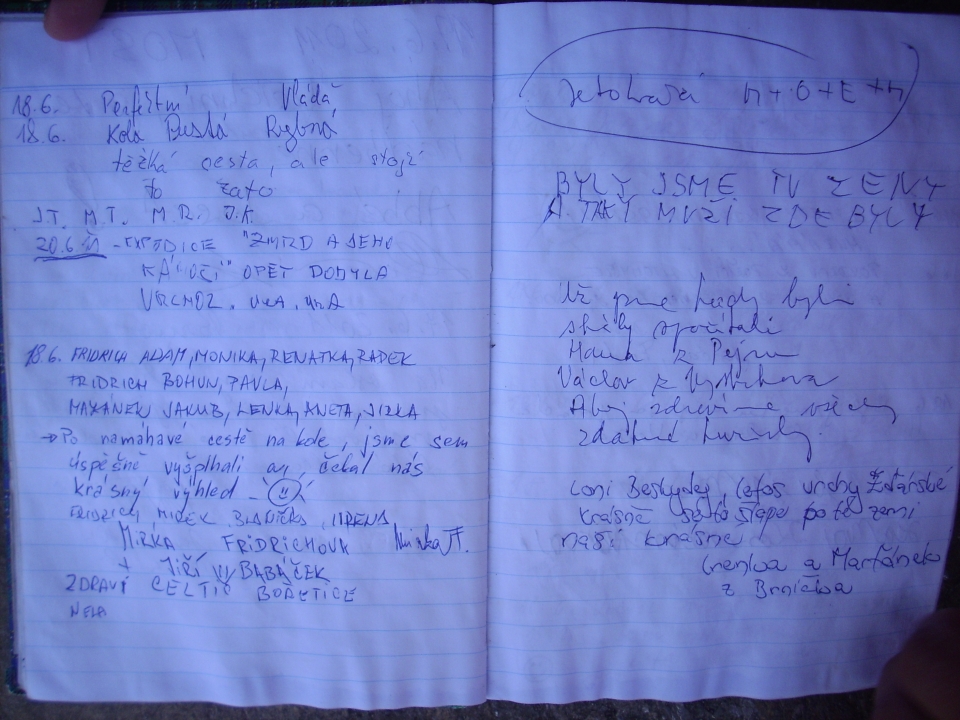 18.6. Perfektní Vláďa
18.6. Kola Pustá Rybná
těžká cesta, ale stojí
to zato
J.T. M.T. M.R. J.K
20.6 - EXPEDICE "ZMRD A JEHO
OPĚT DOBYLA
VRCHOL.
18.6. FRIDRICH ADAM, MONIKA, RENATKA, RADEK
FRIDRICH BOHUN, PAVLA,
MAXÁNEK JAKUB, LENKA, ANETA, JIRKA
→ Po namáhavé cestě na kole, jsme sem
úspěšně vyšplhali a čekal nás
krásný výhled
FRIDRICH, MIREK
MIRKA FRIDRICHOVA
+ JIŘÍ BABÁČEK
ZDRAVÍ CELTIC BOŘETICE
NELA
Je to krása M+O+E+M
BYLY JSME TU ŽENY
A TAKY MUŽI ZDE BYLY
Už jsme tady byli
schody spočítali
Hanka z
Václav z
Ahoj zdravíme všechny
zdatné turisty.
Loni Beskydy, letos vrchy Žďárské
krásně se to šlape po té zemi
naší krásné
Lenka a Marťánek
z Brníčka